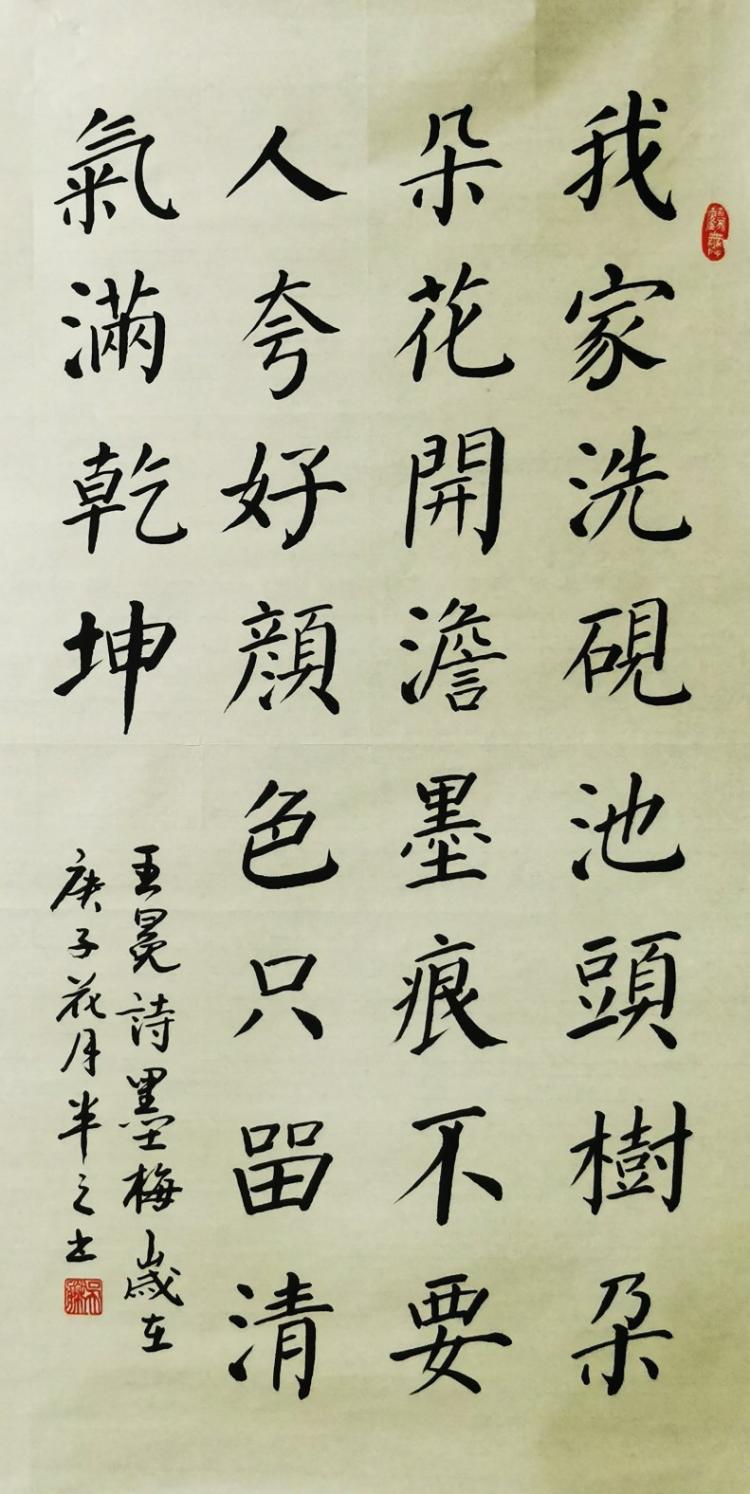 我家洗硯池頭樹朶
朵花開澹墨痕不要
人夸好顔色只留清
氣滿乾坤
王冕詩墨梅歲在
庚子花月半之书